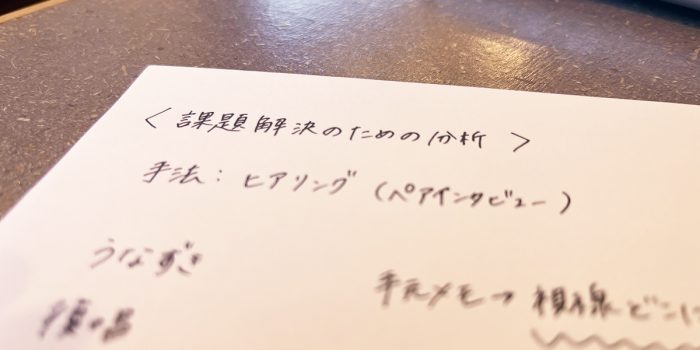 <課題解決のための分析>
手法:ヒアリング(ペアインタビュー)
うなずき
手元メモ→視線どこに